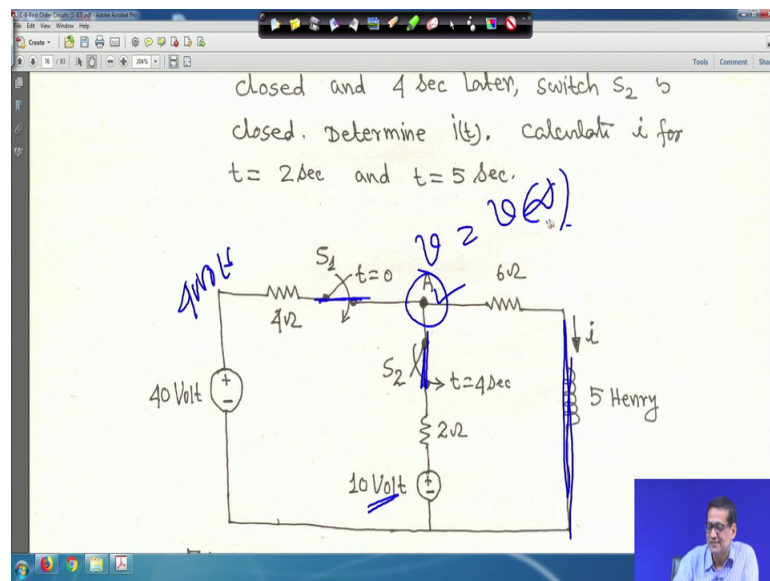 C-6-First Order Circuits [1-83].pdf - Adobe Acrobat Pro
File Edit View Window Help
Create
76 / 83 204% Tools Comment Share
closed and 4 sec later, switch S2 is
closed. Determine i(t). Calculate i for
t = 2 sec and t = 5 sec.
V = V(∞)
40 Volt
S1
t=0
A
6Ω
4Ω
i
S2
t=4 sec
40 Volt
5 Henry
2Ω
10 Volt